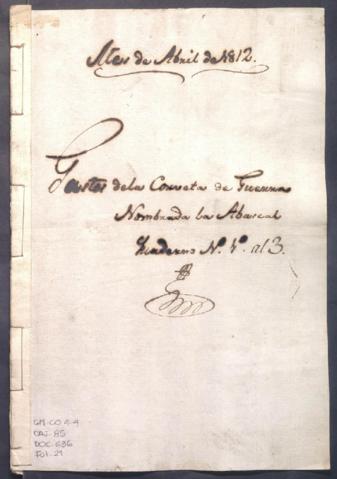 Mes de Abril de 1812.
Gastos dela Corveta de Guerra
Nombrada la Abascal
Quaderno Nº. 1º. al 3.
GM-CO 4-4
CAJ-85
DOC-636
Fol-21